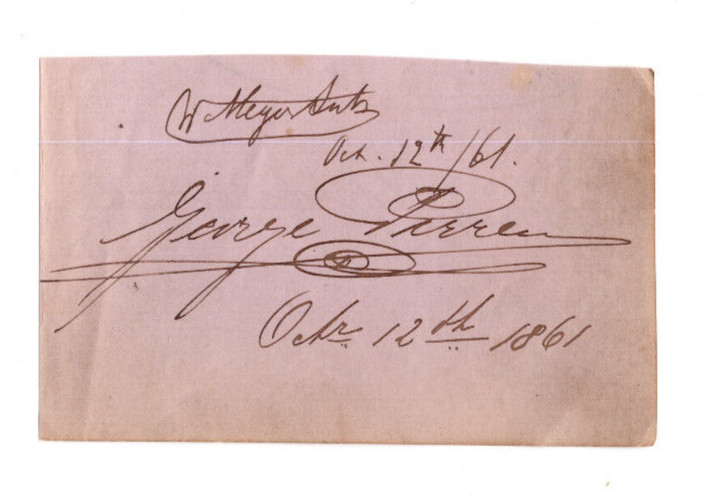 W. Meyer Lutz
Oct. 12th/61.
George Perren
Octr 12th 1861